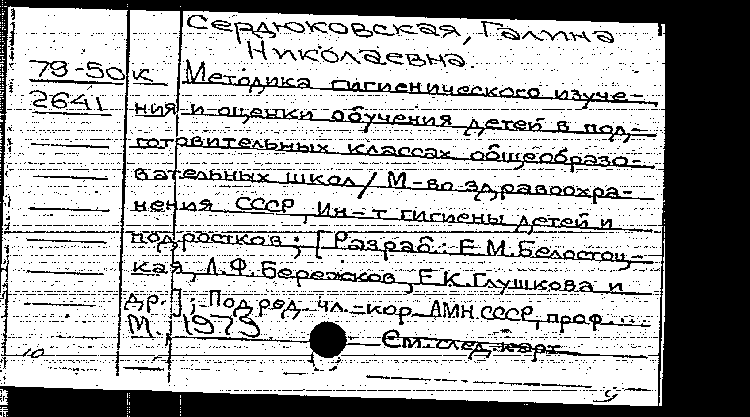 Сердюковская, Галина
Николаевна.
79-50 к Методика гигиенического изуче-
2641 ния и оценки обучения детей в под-
готовительных классах общеобразо-
вательных школ / М-во здравоохра-
нения СССР, Ин-т гигиены детей и
подростков ; [Разраб.: Е.М.Белостоц-
кая, Л.Ф.Бережков, Е.К.Глушкова и
др.] ; Под ред. чл.-кор. АМН СССР, проф. ...
М. 1979
См. след. карт.
10